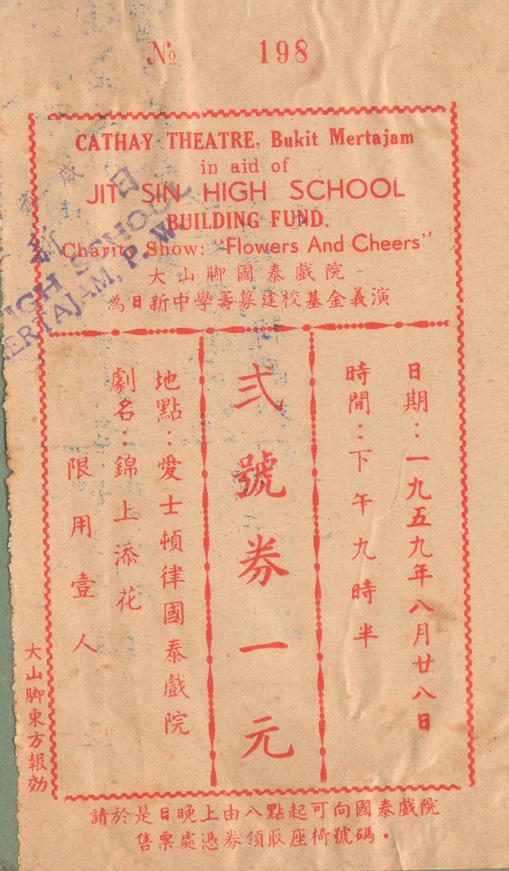 № 198
CATHAY THEATRE, Bukit Mertajam
in aid of
JIT SIN HIGH SCHOOL
BUILDING FUND.
Charity Show: "Flowers And Cheers"
大山脚國泰戲院
為日新中學籌募建校基金義演
日期：一九五九年八月廿八日
時間：下午九時半
弍號券一元
地點：愛士頓律國泰戲院
劇名：錦上添花
限用壹人
大山脚東方報効
請於是日晚上由八點起可向國泰戲院
售票處憑券領取座椅號碼。
日新
HIGH SCHOOL
MERTAJAM, P. W.